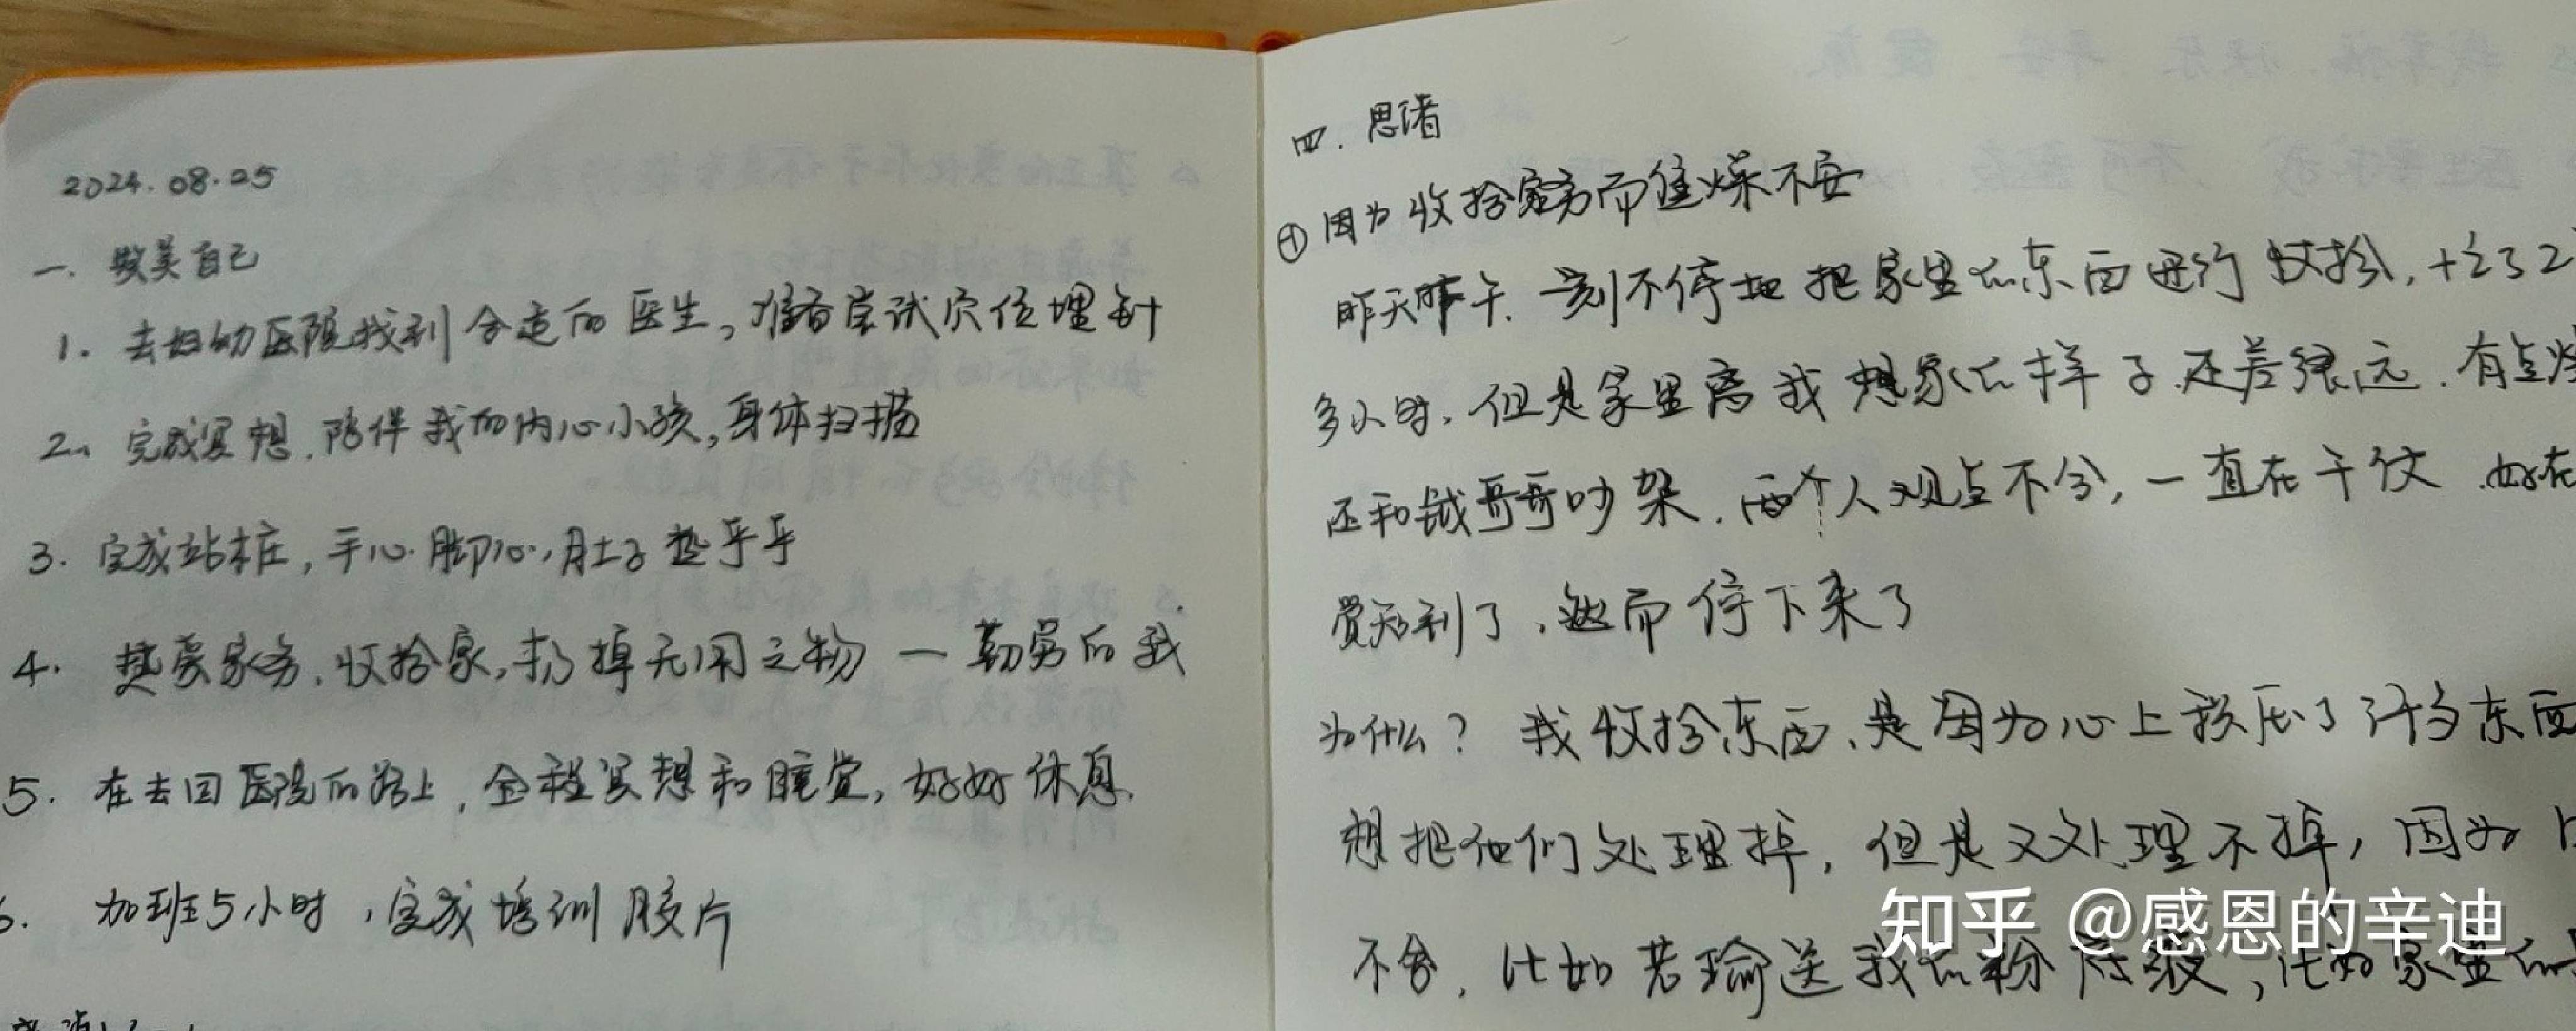 2024.08.25
一. 赞美自己
1. 去妇幼医院找到合适的医生，准备尝试穴位埋针
2、完成冥想.陪伴我的内心小孩,身体扫描
3. 完成站桩,手心.脚心,肚子热乎乎
4. 热爱家务.收拾家,扔掉无用之物 — 勤劳的我
5. 在去回医院的路上,全程冥想和睡觉,好好休息.
6. 加班5小时,完成培训胶片
四. 思绪
①因为收拾家务而焦燥不安
昨天下午.一刻不停地把家里的东西进行收拾,忙了2
多小时.但是家里离我想象的样子还差很远.有点
还和钺哥哥吵架.两个人观点不合,一直在干仗.好在
觉知到了.然而停下来了
为什么? 我收拾东西、是因为心上积压了许多东西
想把他们处理掉,但是又处理不掉,因为
不舍.比如若瑜送我的粉,比如家里的
知乎 @感恩的辛迪